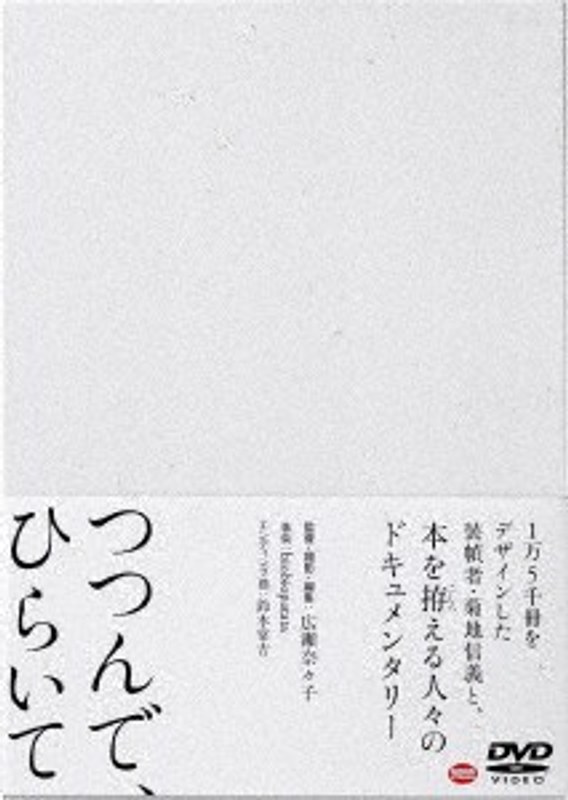 1万5千冊を
デザインした
装幀者・菊地信義と、
本を拵える人々の
ドキュメンタリー
監督・撮影・編集：広瀬奈々子
音楽：biobiopatata
エンディング曲：鈴木常吉
つつんで、
ひらいて
DVD
VIDEO